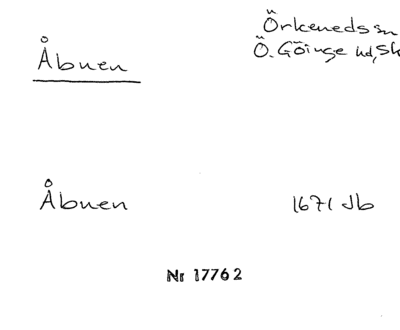 Örkeneds sn
Åbnen
Ö. Göinge hd, Sk
Åbnen
1671 Jb
Nr 17762